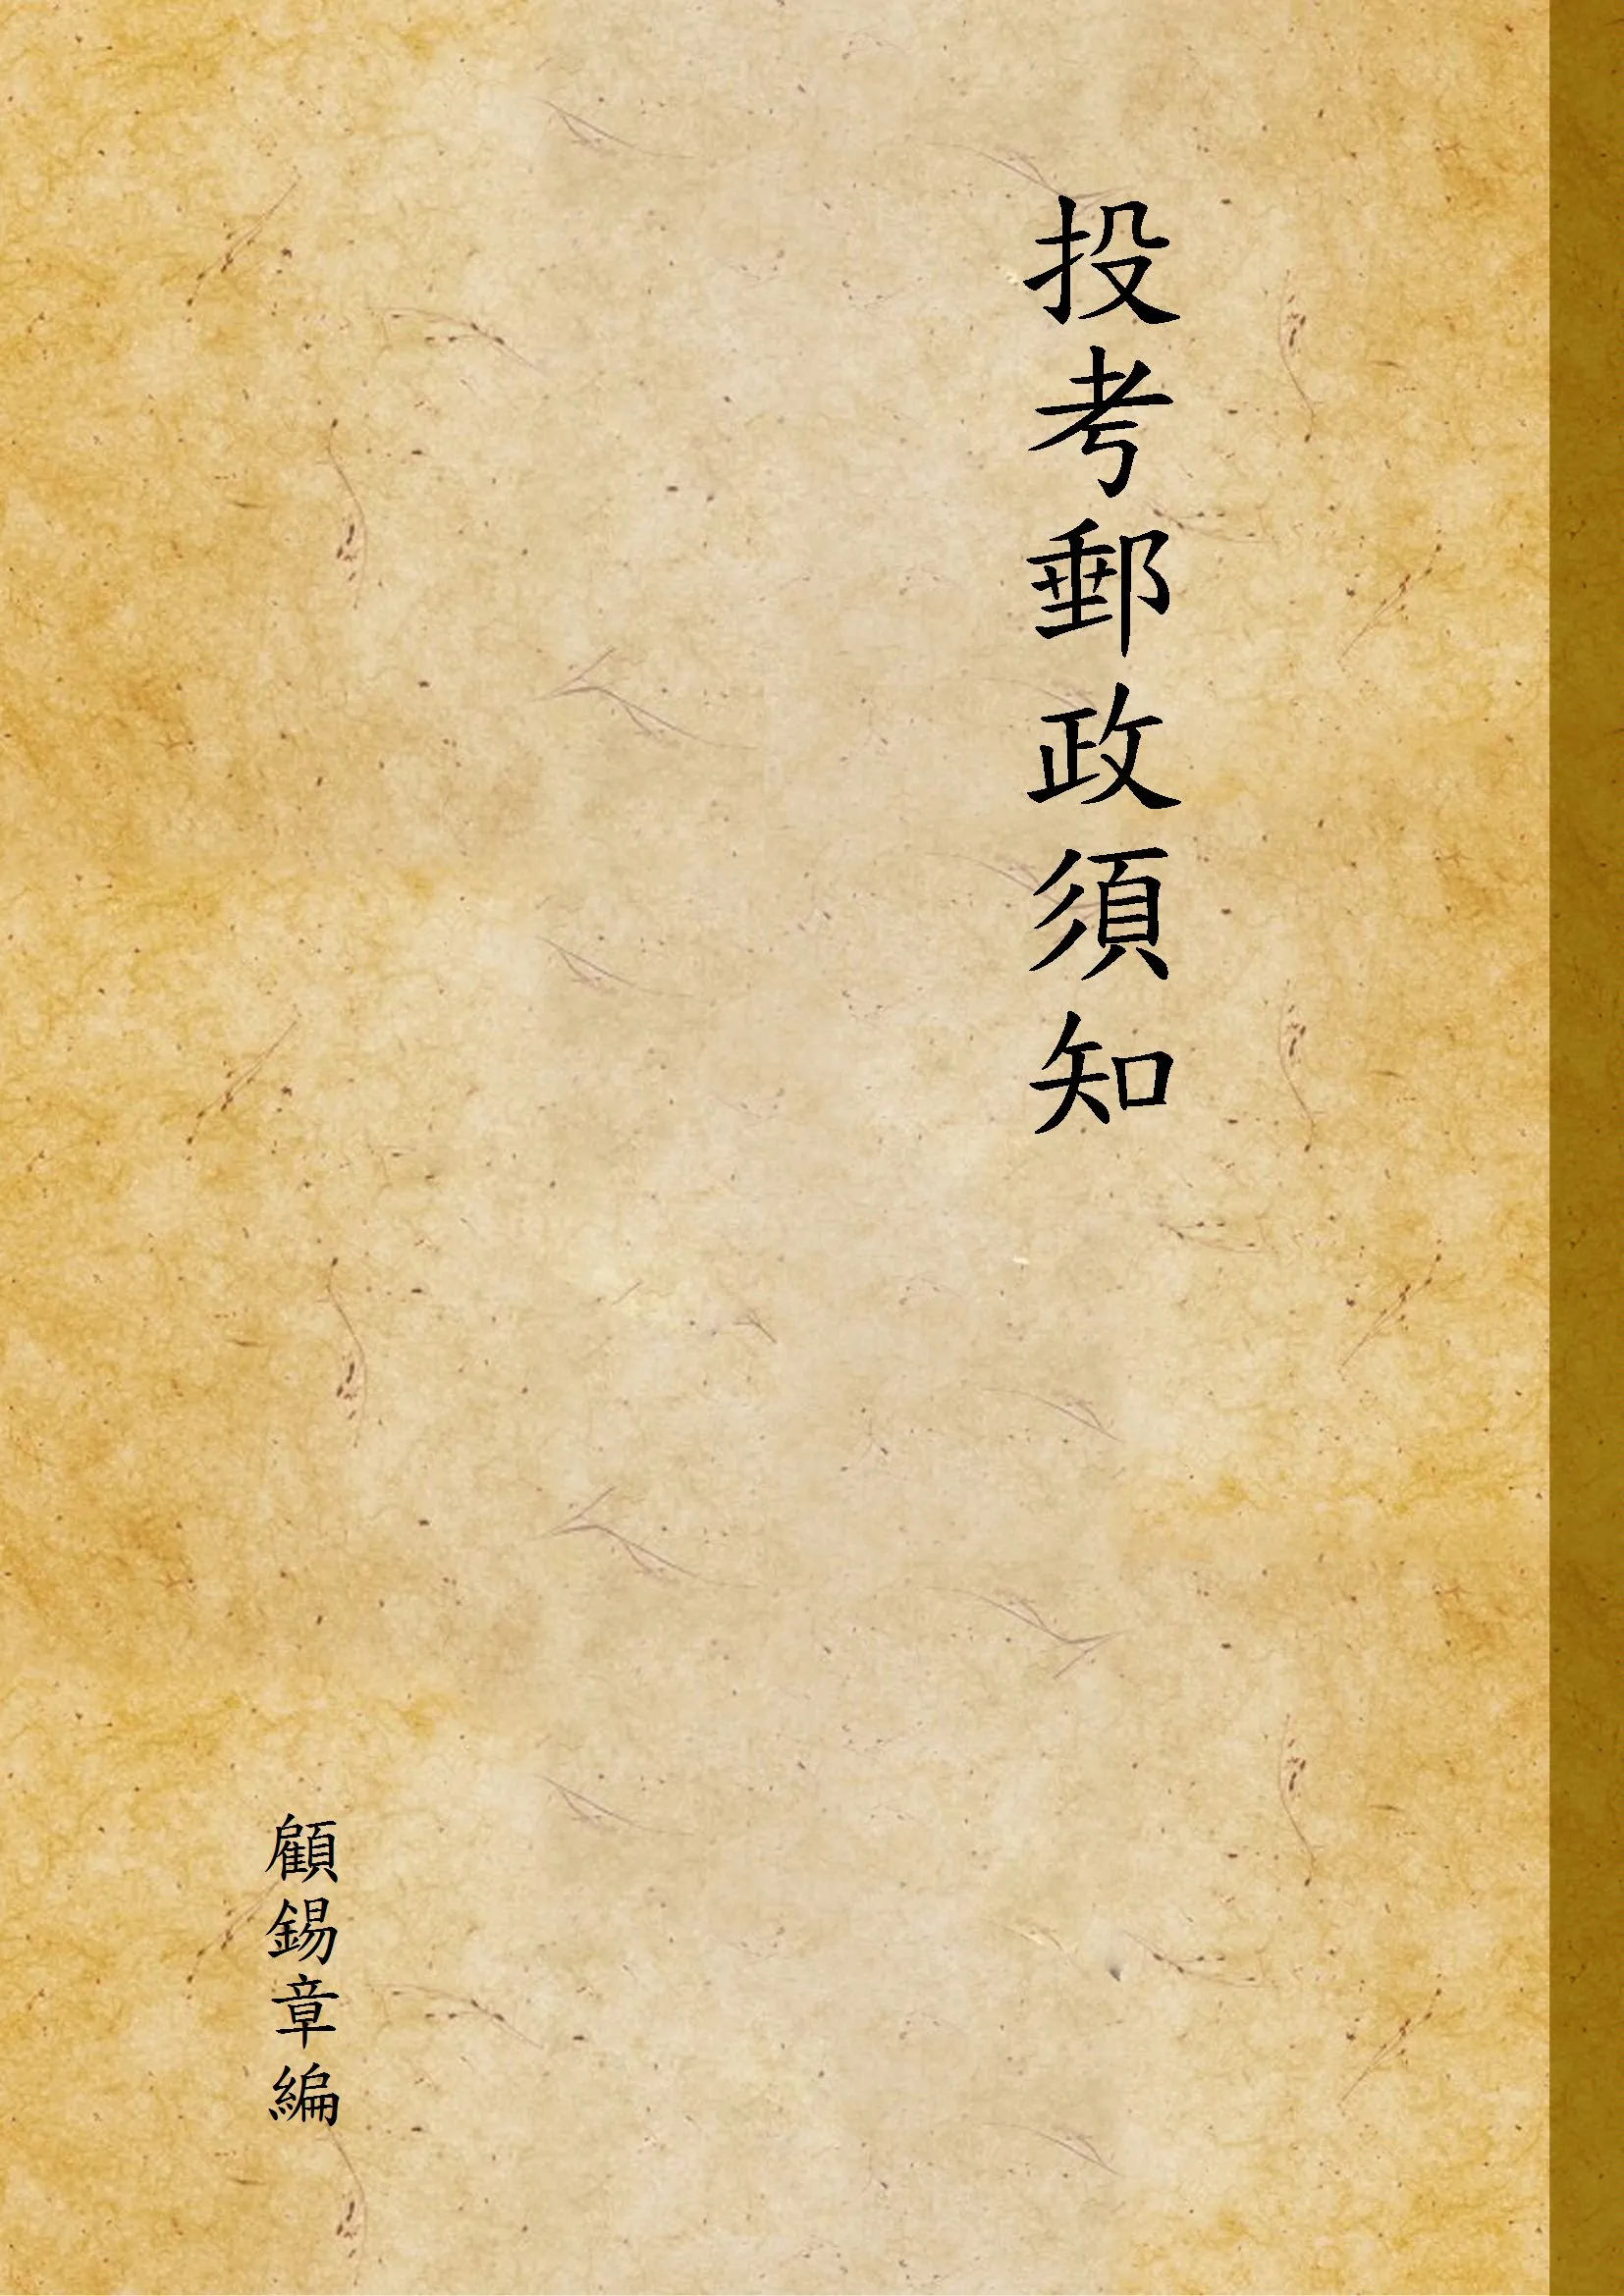 投考郵政須知
顧錫章編